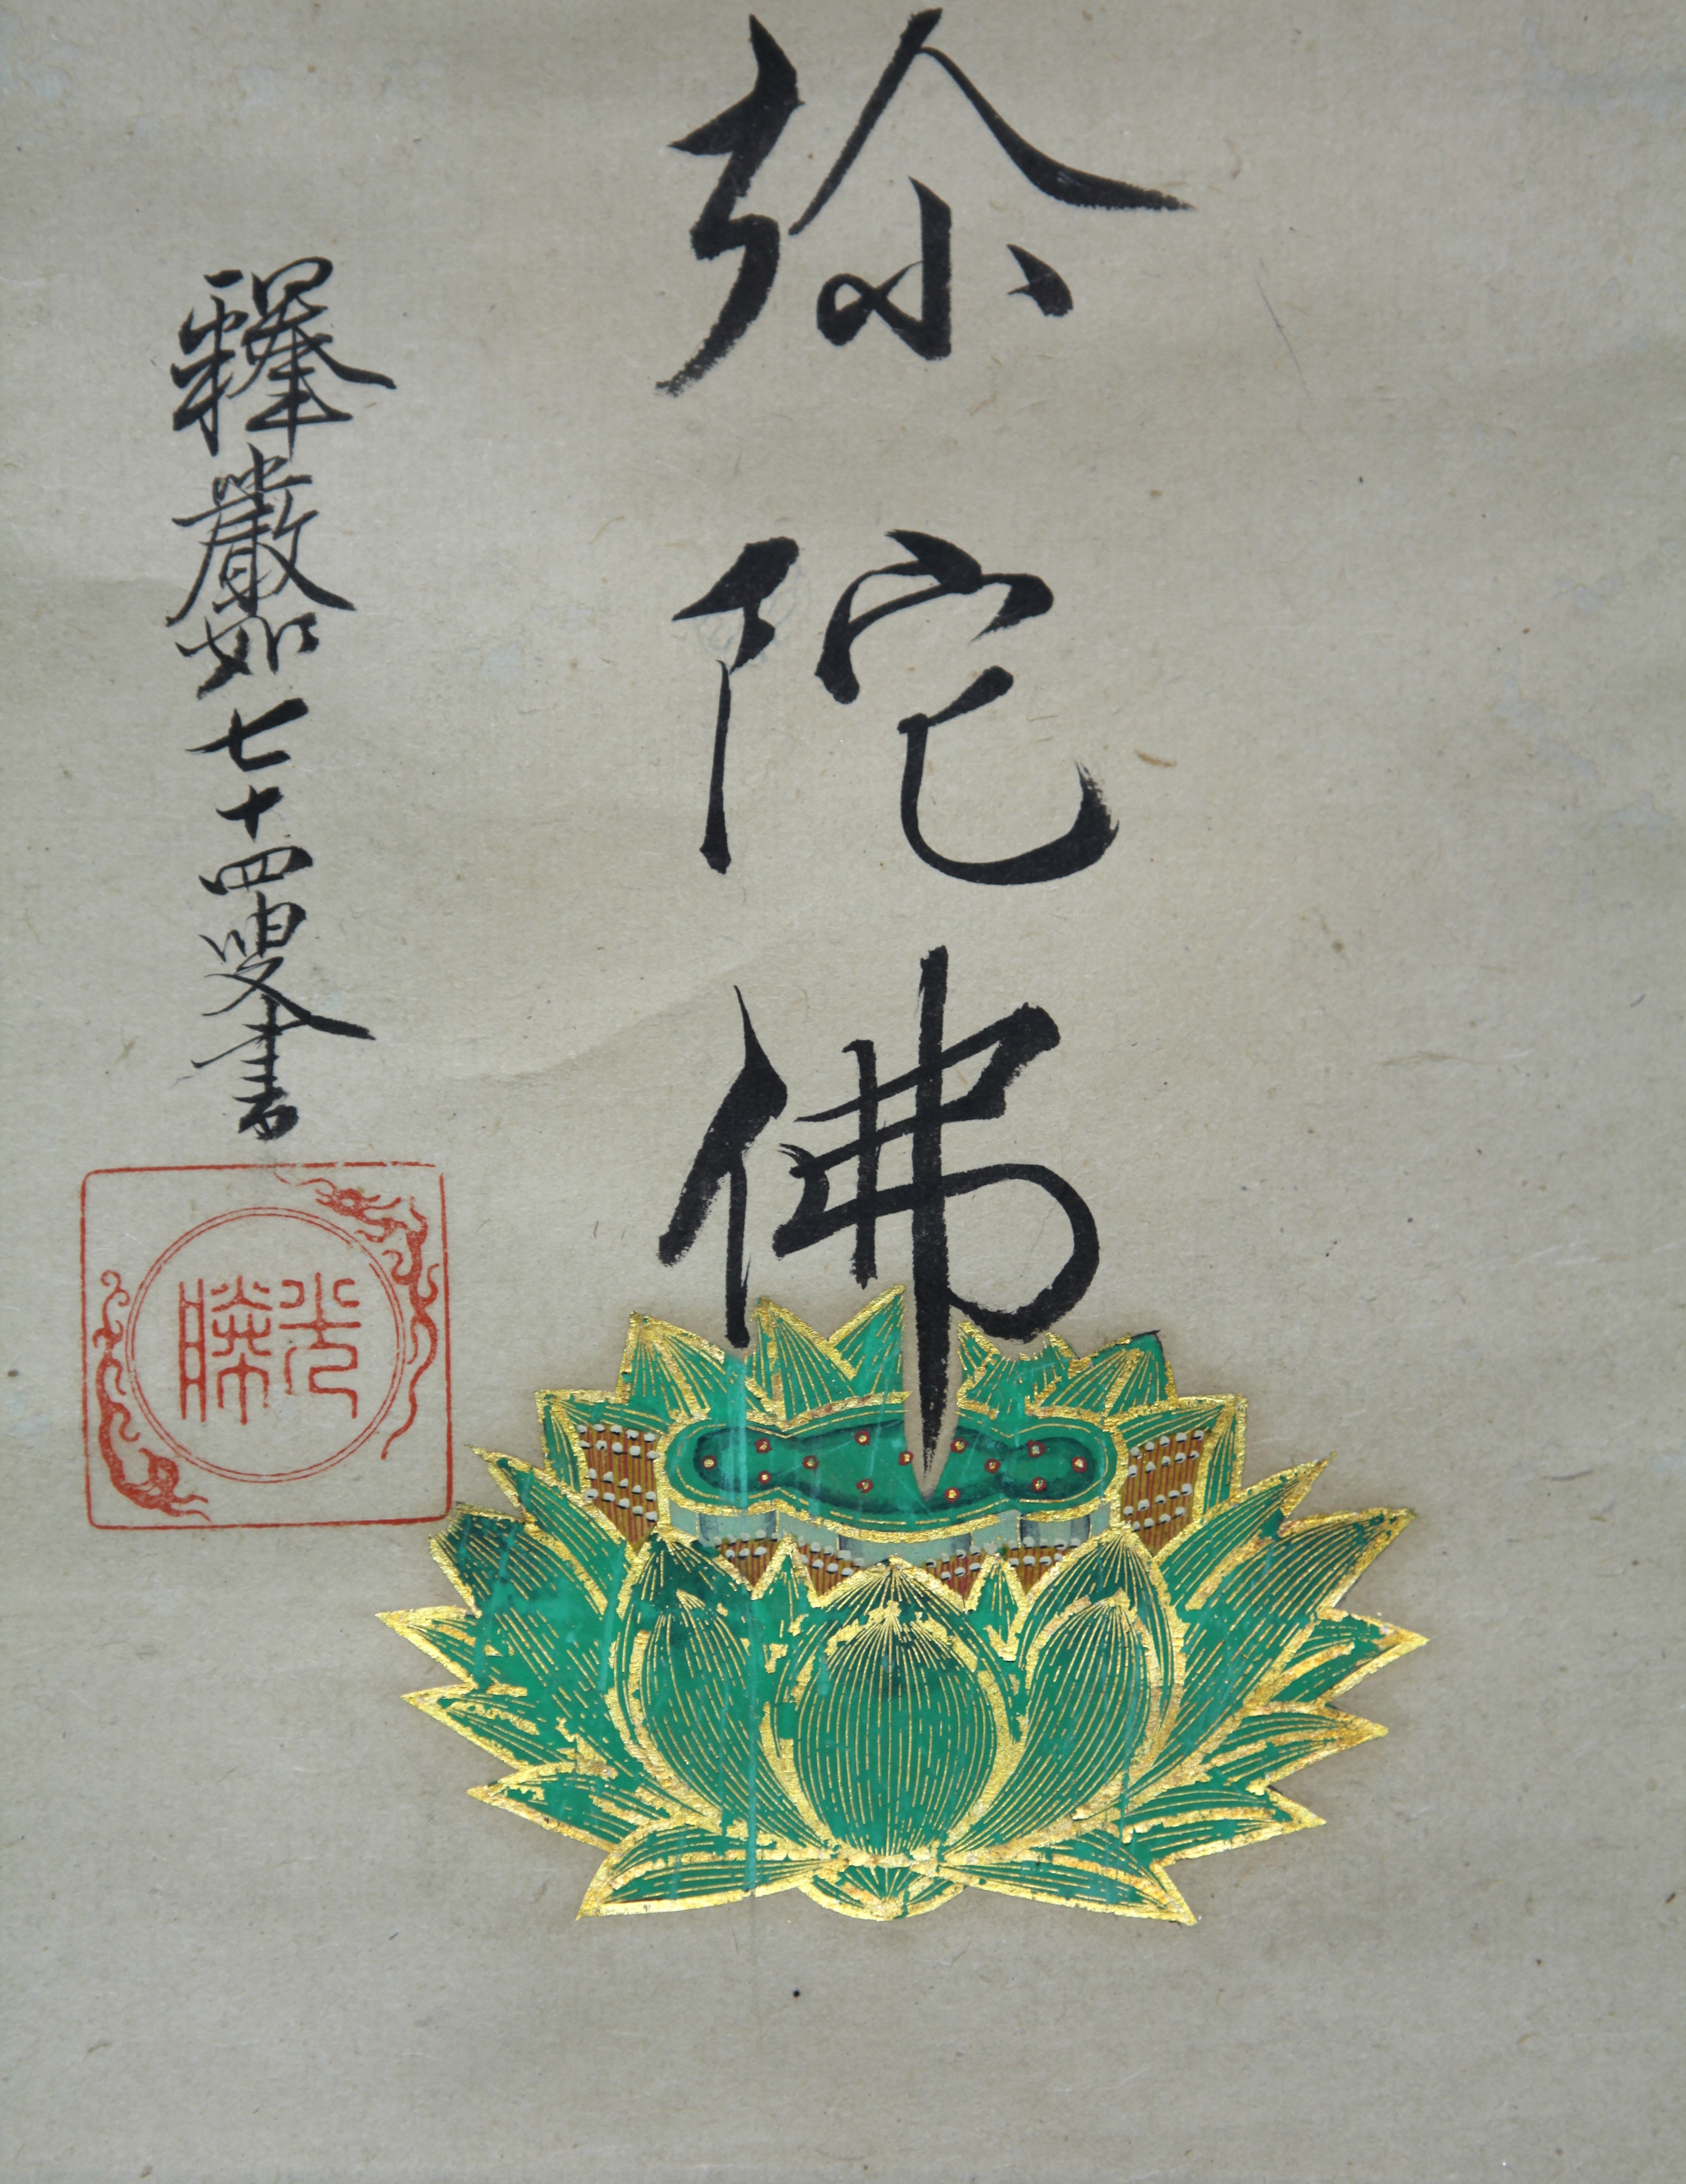 弥陀佛
釋嚴如七十四叟書
光勝